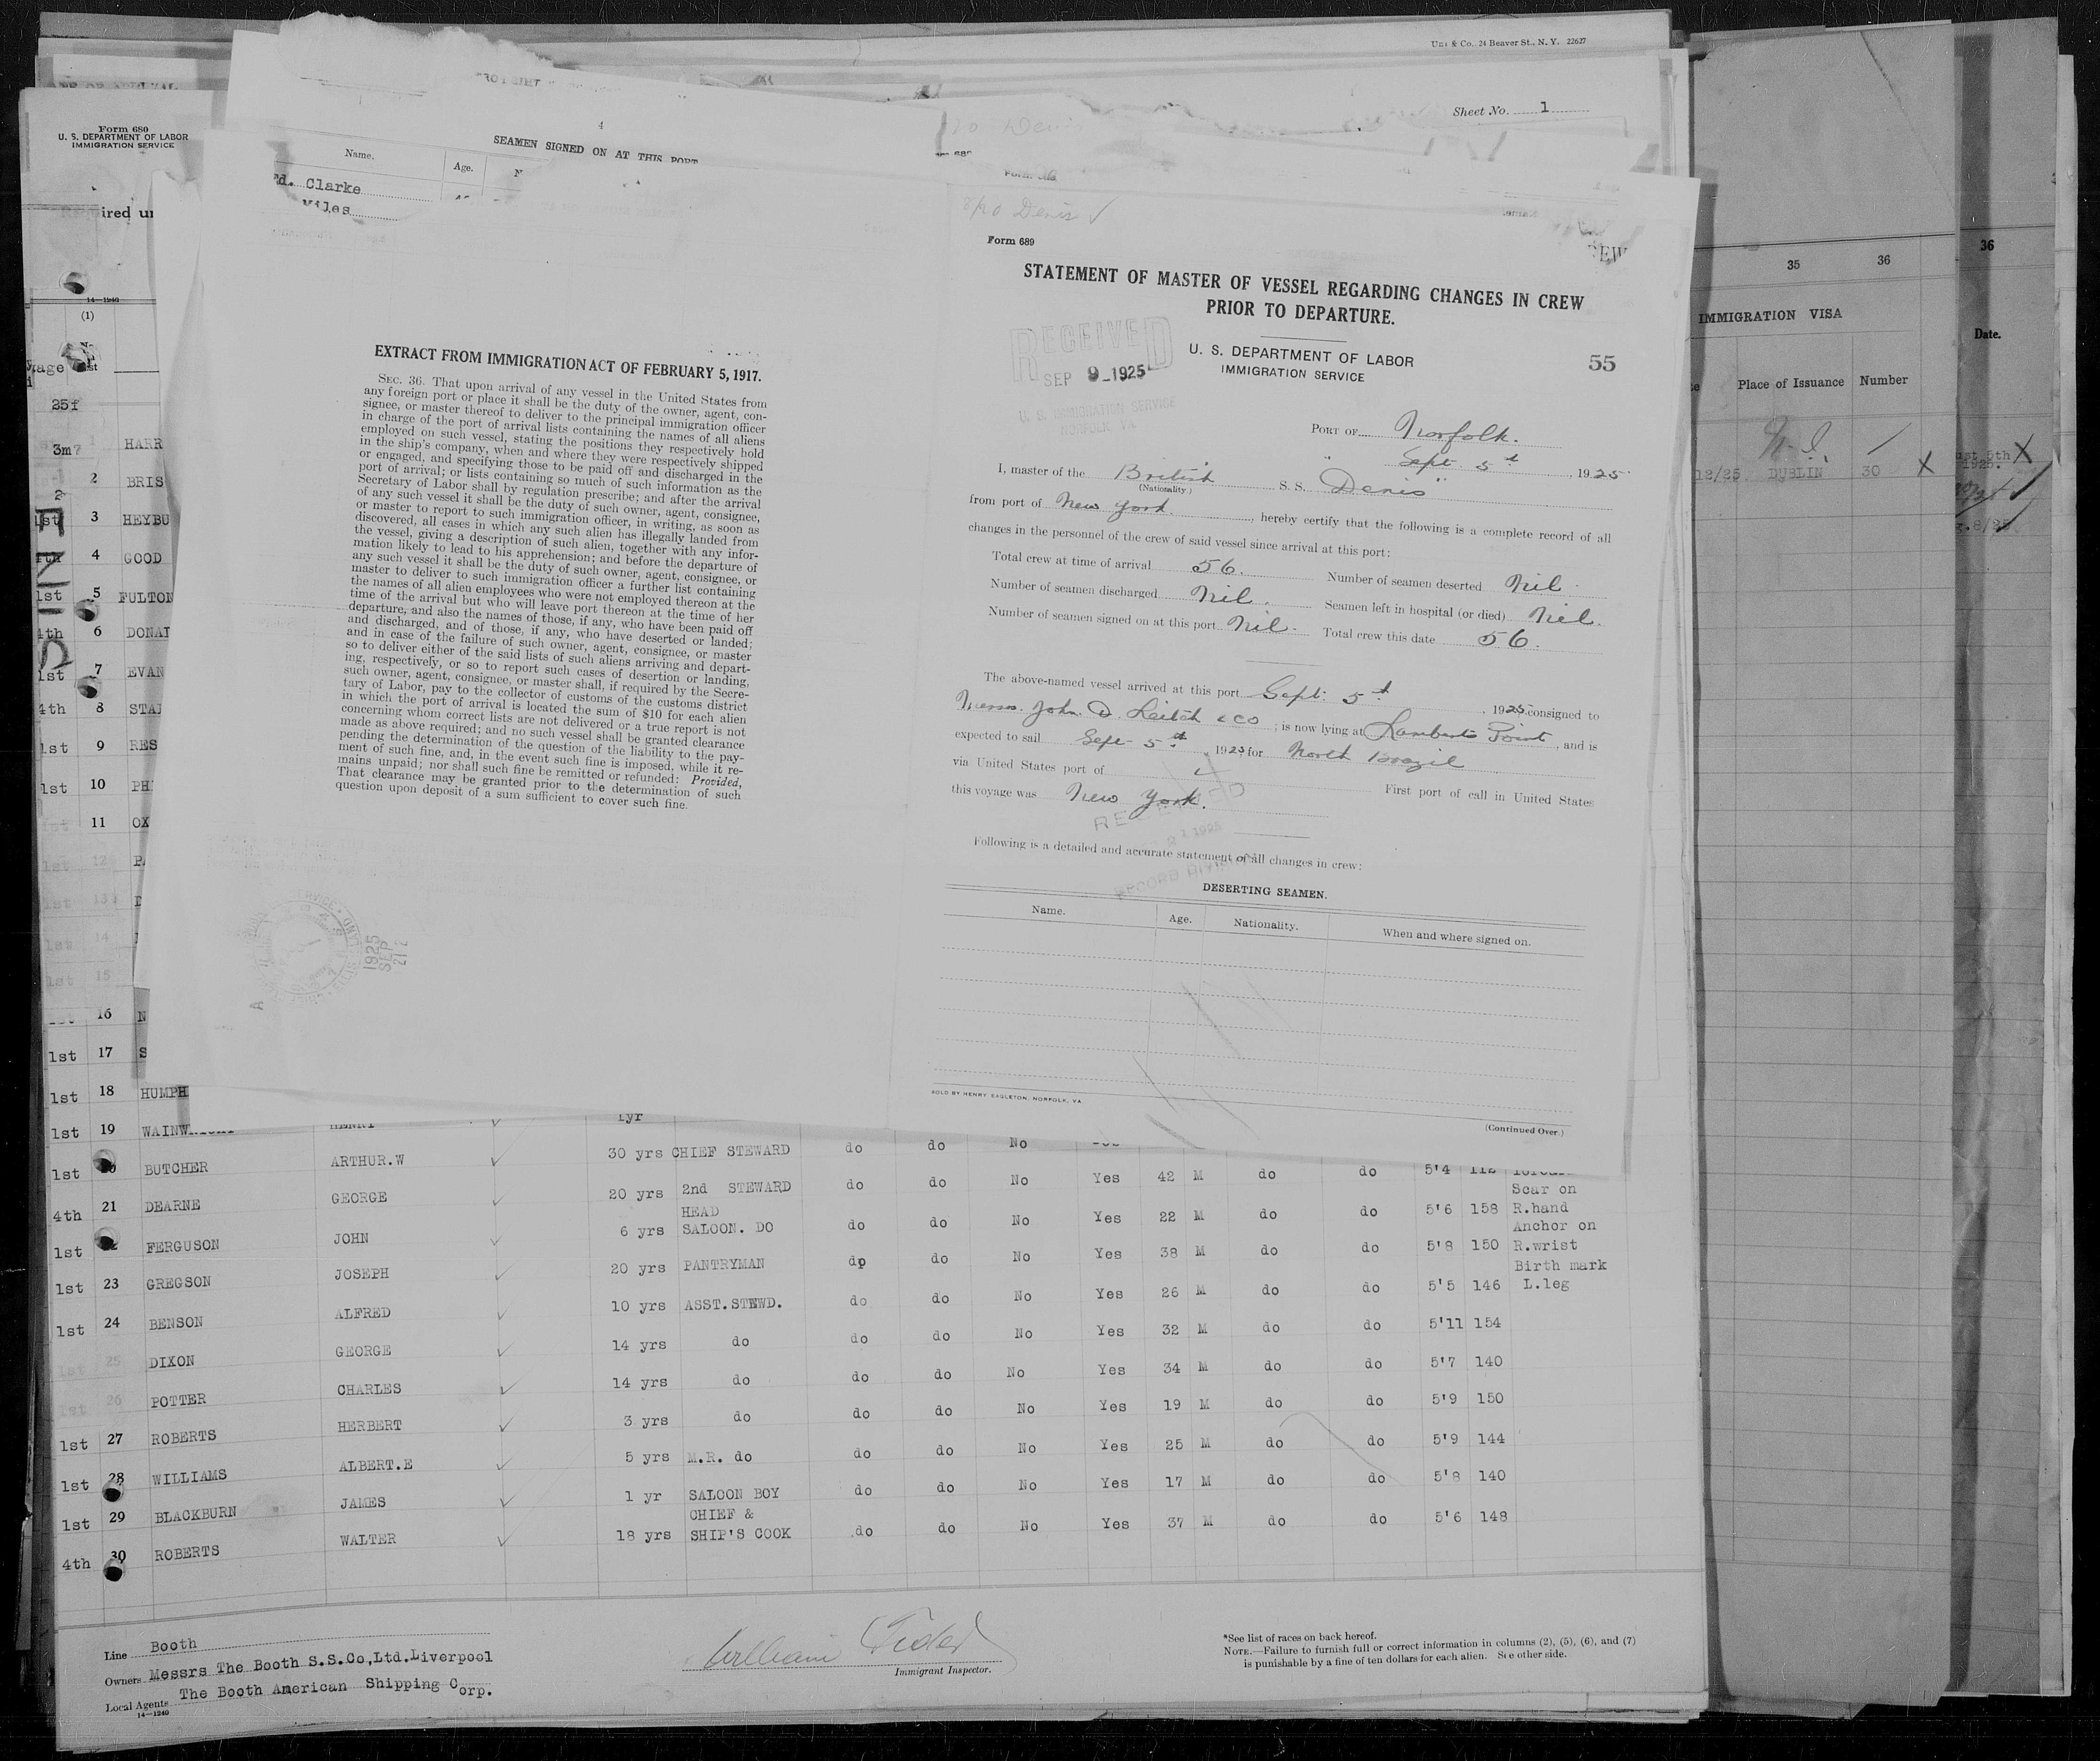 Co., 24 Beaver St., N. Y. 22627
Sheet No. 1
Form 680
U. S. DEPARTMENT OF LABOR
IMMIGRATION SERVICE
14—1240
(1)
HARR
2 BRIS
3 HEYBU
4 GOOD
1st 5 FULTON
6 DONAT
1st 7 EVAN
4th 8 STA
1st 9 RES
1st 10 PH
11 OX
16 N
1st 17 S
1st 18 HUMPH
1st 19 WAINW
4
SEAMEN SIGNED ON AT THIS PORT
Name. Age.
Clarke
EXTRACT FROM IMMIGRATION ACT OF FEBRUARY 5, 1917.
SEC. 36. That upon arrival of any vessel in the United States from
any foreign port or place it shall be the duty of the owner, agent, con-
signee, or master thereof to deliver to the principal immigration officer
in charge of the port of arrival lists containing the names of all aliens
employed on such vessel, stating the positions they respectively hold
in the ship's company, when and where they were respectively shipped
or engaged, and specifying those to be paid off and discharged in the
port of arrival; or lists containing so much of such information as the
Secretary of Labor shall by regulation prescribe; and after the arrival
of any such vessel it shall be the duty of such owner, agent, consignee,
or master to report to such immigration officer, in writing, as soon as
discovered, all cases in which any such alien has illegally landed from
the vessel, giving a description of such alien, together with any infor-
mation likely to lead to his apprehension; and before the departure of
any such vessel it shall be the duty of such owner, agent, consignee, or
master to deliver to such immigration officer a further list containing
the names of all alien employees who were not employed thereon at the
time of the arrival but who will leave port thereon at the time of her
departure, and also the names of those, if any, who have been paid off
and discharged, and of those, if any, who have deserted or landed;
and in case of the failure of such owner, agent, consignee, or master
so to deliver either of the said lists of such aliens arriving and depart-
ing, respectively, or so to report such cases of desertion or landing,
such owner, agent, consignee, or master shall, if required by the Secre-
tary of Labor, pay to the collector of customs of the customs district
in which the port of arrival is located the sum of $10 for each alien
concerning whom correct lists are not delivered or a true report is not
made as above required; and no such vessel shall be granted clearance
pending the determination of the question of the liability to the pay-
ment of such fine, and, in the event such fine is imposed, while it re-
mains unpaid; nor shall such fine be remitted or refunded: Provided,
That clearance may be granted prior to the determination of such
question upon deposit of a sum sufficient to cover such fine.
1925
SEP
21
Denis ✓
Form 689
STATEMENT OF MASTER OF VESSEL REGARDING CHANGES IN CREW
PRIOR TO DEPARTURE.
RECEIVED
SEP 9 - 1925
U. S. IMMIGRATION SERVICE
NORFOLK, VA
U. S. DEPARTMENT OF LABOR
IMMIGRATION SERVICE
55
PORT OF Norfolk.
Sept 5th, 1925
I, master of the British S. S. "Denis"
(Nationality.)
from port of New York, hereby certify that the following is a complete record of all
changes in the personnel of the crew of said vessel since arrival at this port:
Total crew at time of arrival 56. Number of seamen deserted Nil.
Number of seamen discharged Nil. Seamen left in hospital (or died) Nil.
Number of seamen signed on at this port Nil. Total crew this date 56.
The above-named vessel arrived at this port Sept. 5th, 1925 consigned to
Messrs. John. D. Leitch & Co; is now lying at Lamberts Point, and is
expected to sail Sept 5th, 1925 for North Brazil
via United States port of
this voyage was New York. First port of call in United States
RECEIVED
1925
RECORD DIVISION
Following is a detailed and accurate statement of all changes in crew:
DESERTING SEAMEN.
Name. Age. Nationality. When and where signed on.
SOLD BY HENRY EAGLETON, NORFOLK, VA
(Continued Over.)
35 36
IMMIGRATION VISA
Place of Issuance Number
12/25 DUBLIN 30 X
36
Date.
1st BUTCHER ARTHUR.W ✓ 30 yrs CHIEF STEWARD do do No Yes 42 M do do 5'4 112
4th 21 DEARNE GEORGE ✓ 20 yrs 2nd STEWARD do do No Yes 22 M do do 5'6 158 Scar on R.hand
1st FERGUSON JOHN ✓ 6 yrs HEAD SALOON. DO do do No Yes 38 M do do 5'8 150 Anchor on R.wrist
1st 23 GREGSON JOSEPH ✓ 20 yrs PANTRYMAN do do No Yes 26 M do do 5'5 146 Birth mark L.leg
1st 24 BENSON ALFRED ✓ 10 yrs ASST.STEWD. do do No Yes 32 M do do 5'11 154
1st 25 DIXON GEORGE ✓ 14 yrs do do do No Yes 34 M do do 5'7 140
1st 26 POTTER CHARLES ✓ 14 yrs do do do No Yes 19 M do do 5'9 150
1st 27 ROBERTS HERBERT ✓ 3 yrs do do do No Yes 25 M do do 5'9 144
1st 28 WILLIAMS ALBERT.E ✓ 5 yrs M.R. do do do No Yes 17 M do do 5'8 140
1st 29 BLACKBURN JAMES ✓ 1 yr SALOON BOY do do No Yes 37 M do do 5'6 148
4th 30 ROBERTS WALTER ✓ 18 yrs CHIEF & SHIP'S COOK do do No
Line Booth
Owners Messrs The Booth S.S.Co,Ltd.Liverpool
Local Agents The Booth American Shipping Corp.
14—1240
William
Immigrant Inspector.
*See list of races on back hereof.
NOTE.—Failure to furnish full or correct information in columns (2), (5), (6), and (7)
is punishable by a fine of ten dollars for each alien. See other side.